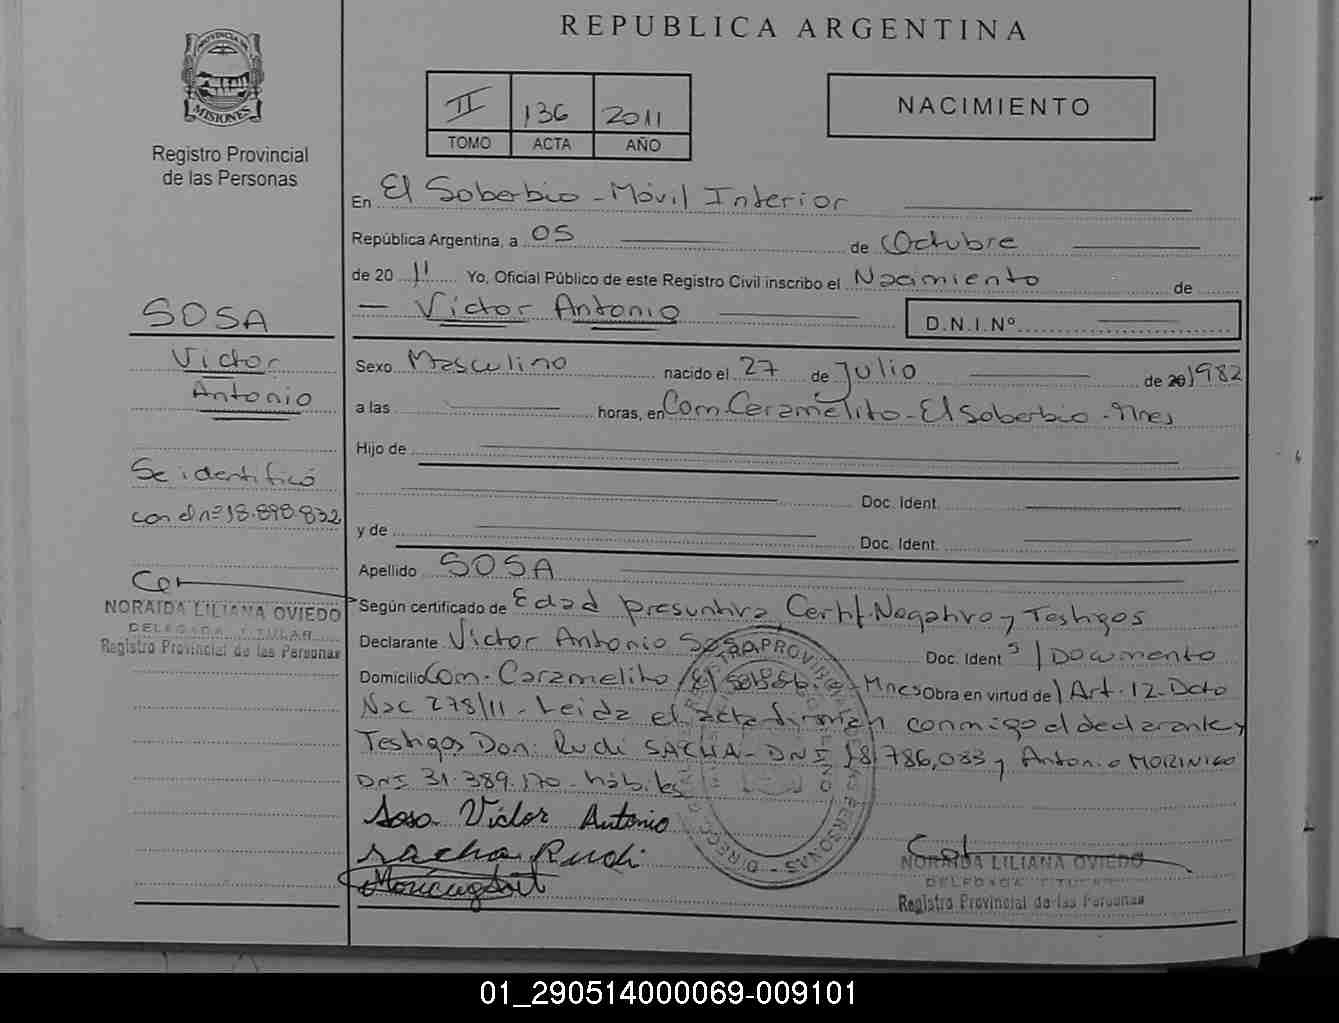 REPUBLICA ARGENTINA
PROVINCIA DE
MISIONES
Registro Provincial
de las Personas
II 136 2011
TOMO ACTA AÑO
NACIMIENTO
En El Soberbio - Móvil Interior
República Argentina, a 05 de Octubre
de 20 11 Yo, Oficial Público de este Registro Civil inscribo el Nacimiento de
Victor Antonio D.N.I.Nº
SOSA
Victor
Antonio
Se identificó
con dni 18.898.832
NORAIDA LILIANA OVIEDO
DELEGADA TITULAR
Registro Provincial de las Personas
Sexo Masculino nacido el 27 de Julio de 20 1982
a las horas, en Com. Caramelito - El Soberbio - Mnes
Hijo de
Doc. Ident.
y de
Doc. Ident.
Apellido SOSA
Según certificado de Edad presuntiva, Certif. Negativo y Testigos
Declarante Victor Antonio Sosa Doc. Ident S/Documento
Domicilio Com. Caramelito El Soberbio - Mnes Obra en virtud de Art. 12 Dcto
Nac 278/11 - Leida el acta firman conmigo el declarante y
Testigos Don: Rudi SACHA - DNI 18.786.033 y Antonio MORINIGO
DNI 31.389.170 - hábiles
Sosa Victor Antonio
Sacha Rudi
NORAIDA LILIANA OVIEDO
DELEGADA TITULAR
Registro Provincial de las Personas
01_290514000069-009101